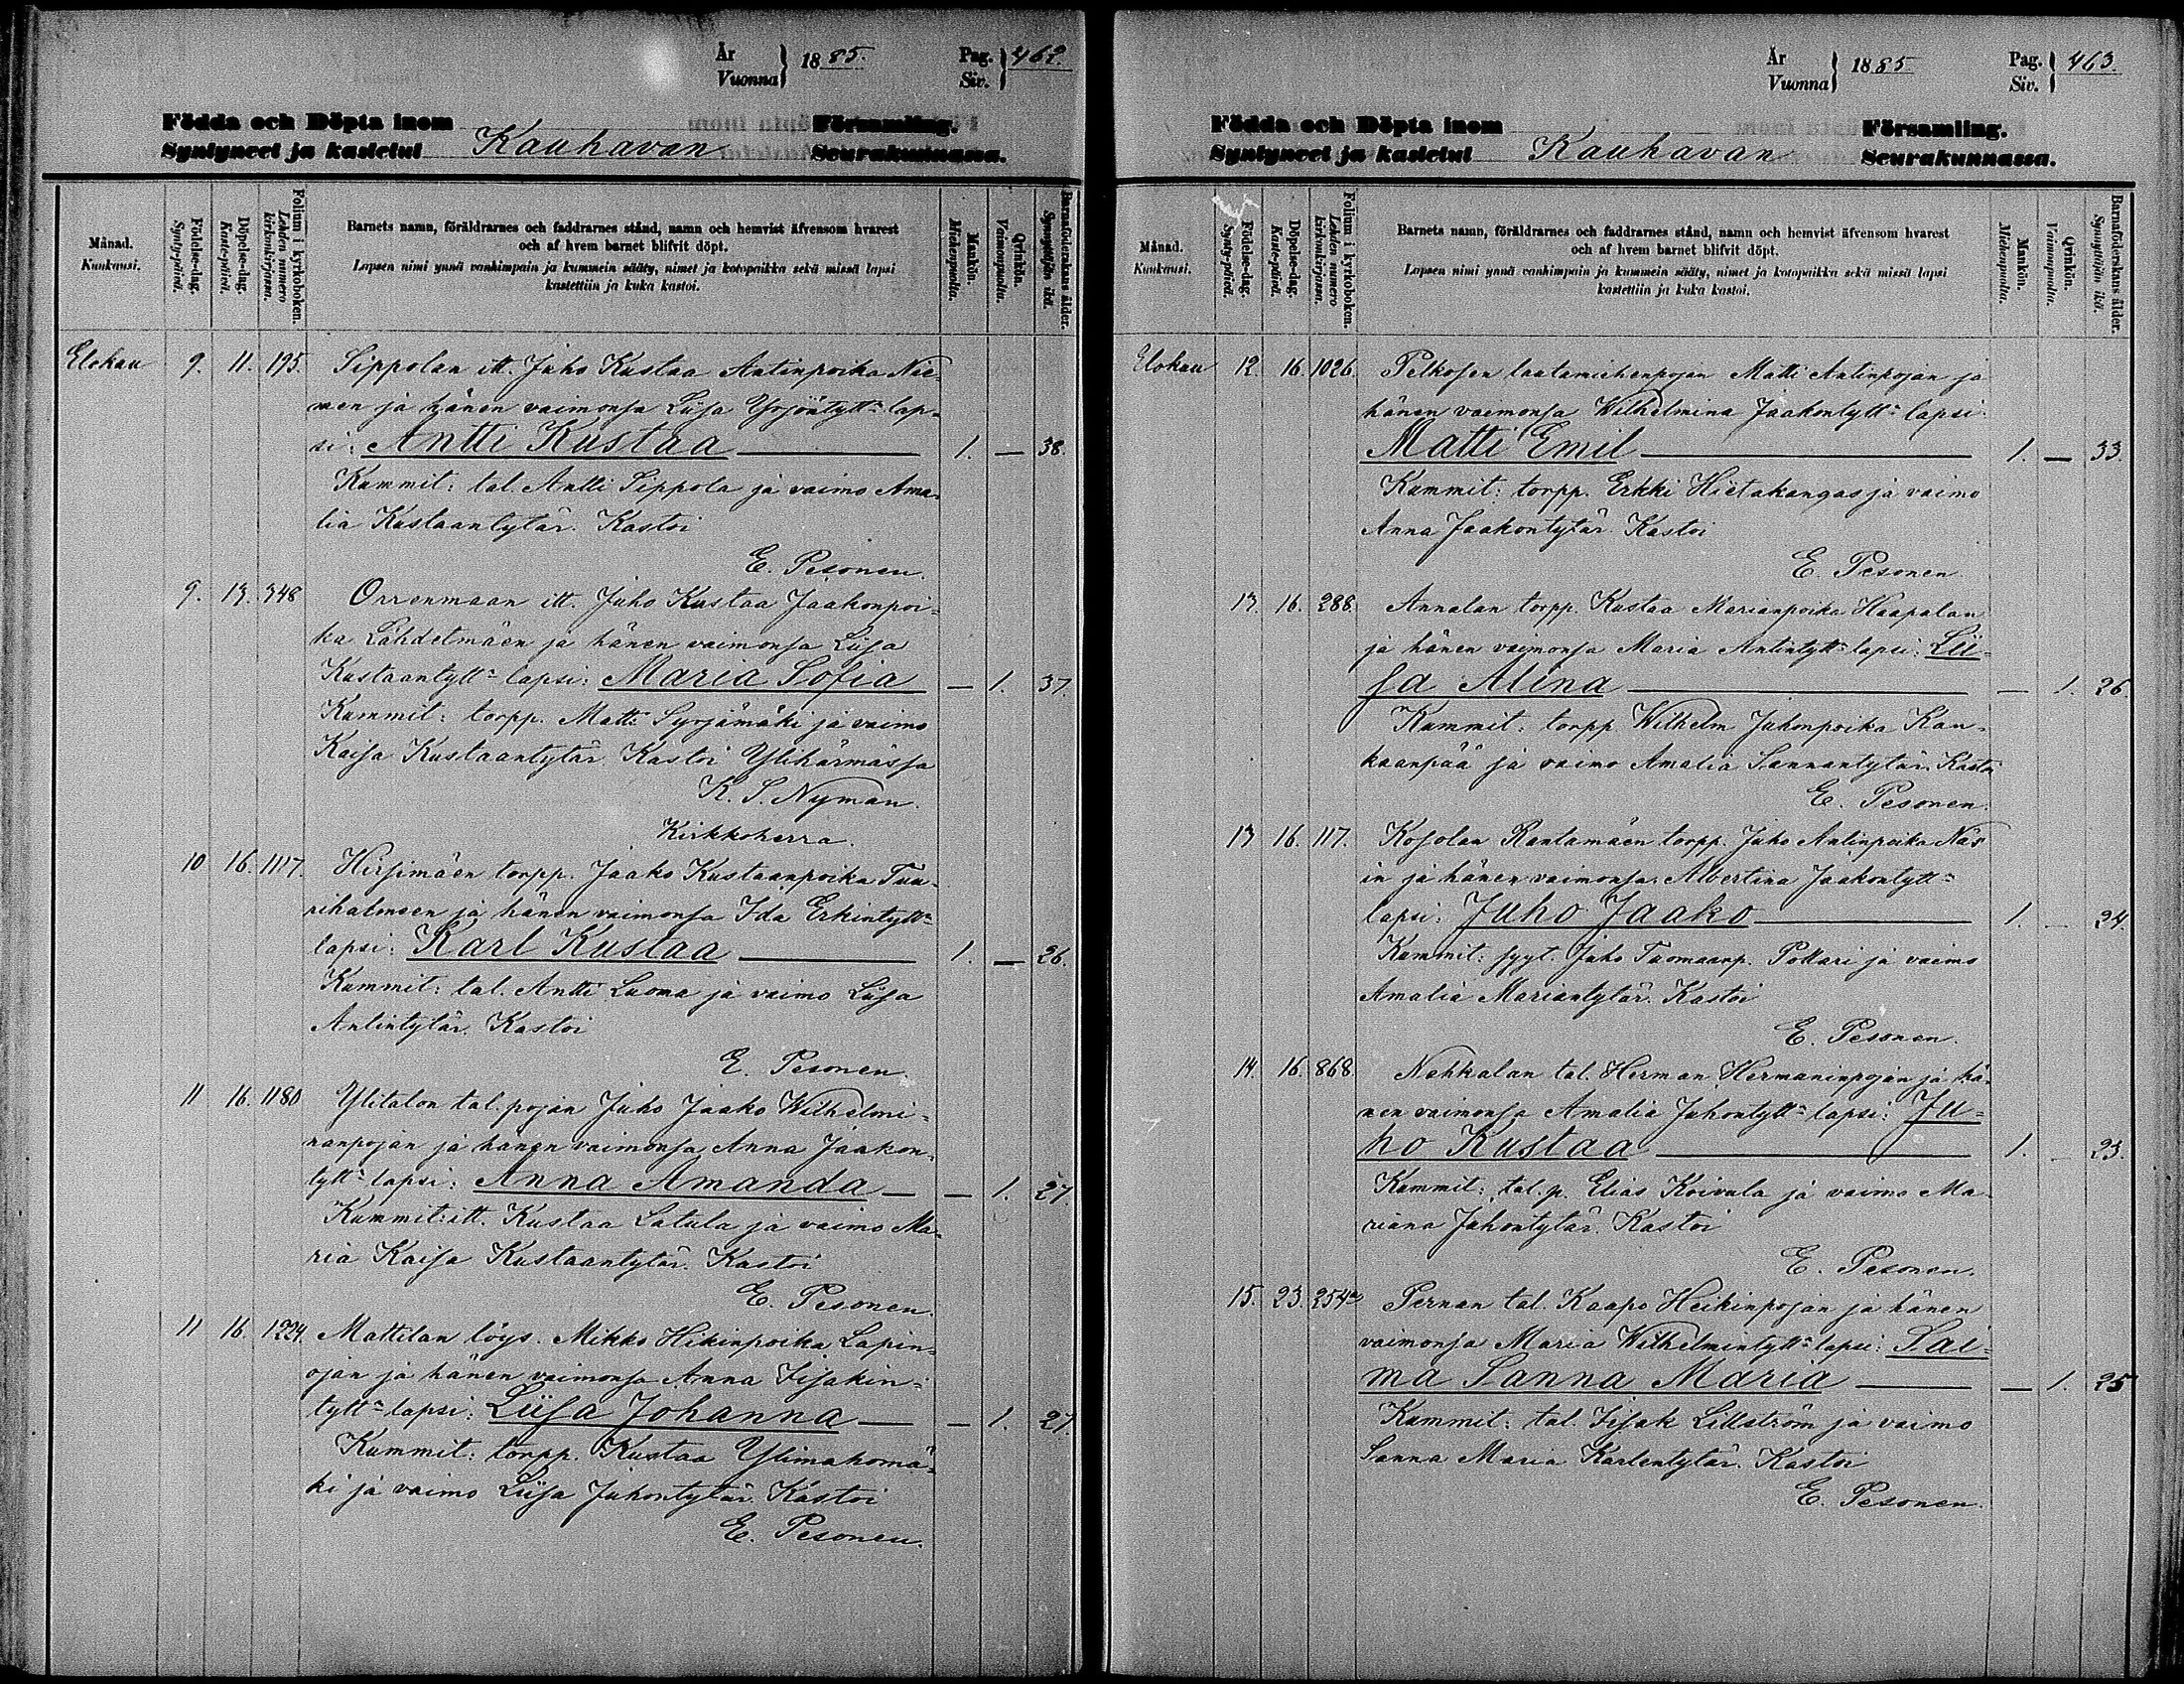 År
Vuonna } 1885. Pag.
Siv. } 462.
Födda och Döpta inom Församling.
Syntyneet ja kastetut Kauhavan Seurakunnassa.
Månad.
Kuukausi.
Födelse-dag.
Synty-päivä.
Döpelse-dag.
Kaste-päivä.
Folium i kyrkoboken.
Lehden numero
kirkonkirjassa.
Barnets namn, föräldrarnes och faddrarnes stånd, namn och hemvist äfvensom hvarest
och af hvem barnet blifvit döpt.
Lapsen nimi ynnä vanhimpain ja kummein sääty, nimet ja kotopaikka sekä missä lapsi
kastettiin ja kuka kastoi.
Mankön.
Miehenpuolta.
Qvinkön.
Vaimonpuolta.
Barnaföderskans ålder.
Synnyttäjän ikä.
Elokuu 9. 11. 195. Sippolan itt. Juho Kustaa Antinpoika Nie-
men ja hänen vaimonsa Liisa Yrjöntytt:n lap-
si: Antti Kustaa 1. — 38.
Kummit: tal. Antti Sippola ja vaimo Ama-
lia Kustaantytär. Kastoi
E. Pesonen.
9. 13. 348 Orrenmaan itt. Juho Kustaa Jaakonpoi-
ka Lähdetmäen ja hänen vaimonsa Liisa
Kustaantytt:n lapsi: Maria Sofia — 1. 37.
Kummit: torpp. Matti Syrjämäki ja vaimo
Kaisa Kustaantytär. Kastoi Ylihärmässä
K. S. Nyman.
Kirkkoherra.
10 16. 1117. Hirsimäen torpp. Jaako Kustaanpoika Tuu-
rihalmeen ja hänen vaimonsa Ida Erkintytt:n
lapsi: Karl Kustaa 1. — 26.
Kummit: tal. Antti Luoma ja vaimo Liisa
Antintytär. Kastoi
E. Pesonen.
11 16. 1180 Ylitalon tal. pojan Juho Jaako Wilhelmi-
nanpojan ja hänen vaimonsa Anna Jaakon-
tytt:n lapsi: Anna Amanda — 1. 27
Kummit: itt. Kustaa Latula ja vaimo Ma-
ria Kaisa Kustaantytär. Kastoi
E. Pesonen.
11 16. 1224. Mattilan löys. Mikko Hikinpoika Lapin-
ojan ja hänen vaimonsa Anna Iisakin-
tytt:n lapsi: Liisa Johanna — 1. 27.
Kummit: torpp. Kustaa Ylimahomä-
ki ja vaimo Liisa Juhontytär. Kastoi
E. Pesonen.
År
Vuonna } 1885 Pag.
Siv. } 463.
Födda och Döpta inom Församling.
Syntyneet ja kastetut Kauhavan Seurakunnassa.
Månad.
Kuukausi.
Födelse-dag.
Synty-päivä.
Döpelse-dag.
Kaste-päivä.
Folium i kyrkoboken.
Lehden numero
kirkonkirjassa.
Barnets namn, föräldrarnes och faddrarnes stånd, namn och hemvist äfvensom hvarest
och af hvem barnet blifvit döpt.
Lapsen nimi ynnä vanhimpain ja kummein sääty, nimet ja kotopaikka sekä missä lapsi
kastettiin ja kuka kastoi.
Mankön.
Miehenpuolta.
Qvinkön.
Vaimonpuolta.
Barnaföderskans ålder.
Synnyttäjän ikä.
Elokuu 12. 16. 1026. Pelkosen lautamiehenpojan Matti Antinpojan ja
hänen vaimonsa Wilhelmina Jaakontytt:n lapsi
Matti Emil 1. — 33.
Kummit: torpp. Erkki Hietakangas ja vaimo
Anna Jaakontytär. Kastoi
E. Pesonen.
13. 16. 288. Annalan torpp. Kustaa Marianpoika Haapalan
ja hänen vaimonsa Maria Antintytt:n lapsi: Lii-
sa Alina — 1. 26.
Kummit: torpp Wilhelm Juhonpoika Kan-
kaanpää ja vaimo Amalia Sannantytär. Kastoi
E. Pesonen.
13 16. 117. Kosolan Rantamäen torpp. Juho Antinpoika Näs
in ja hänen vaimonsa Albertina Jaakontytt:n
lapsi: Juho Jaako 1. — 24.
Kummit: syyt. Juho Tuomaanp. Pollari ja vaimo
Amalia Mariantytär. Kastoi
E. Pesonen.
14. 16. 868. Nahkalan tal. Herman Hermaninpojan ja hä-
nen vaimonsa Amalia Juhontytt:n lapsi: Ju-
ho Kustaa 1. — 23.
Kummit: tal. p. Elias Koivula ja vaimo Ma-
riana Juhontytär. Kastoi
E. Pesonen.
15. 23. 254 Pernan tal. Kaapo Heikinpojan ja hänen
vaimonsa Maria Wilhelmintytt:n lapsi: Sai-
ma Sanna Maria — 1. 25
Kummit: tal. Iisak Lillström ja vaimo
Sanna Maria Karlentytär. Kastoi
E. Pesonen.